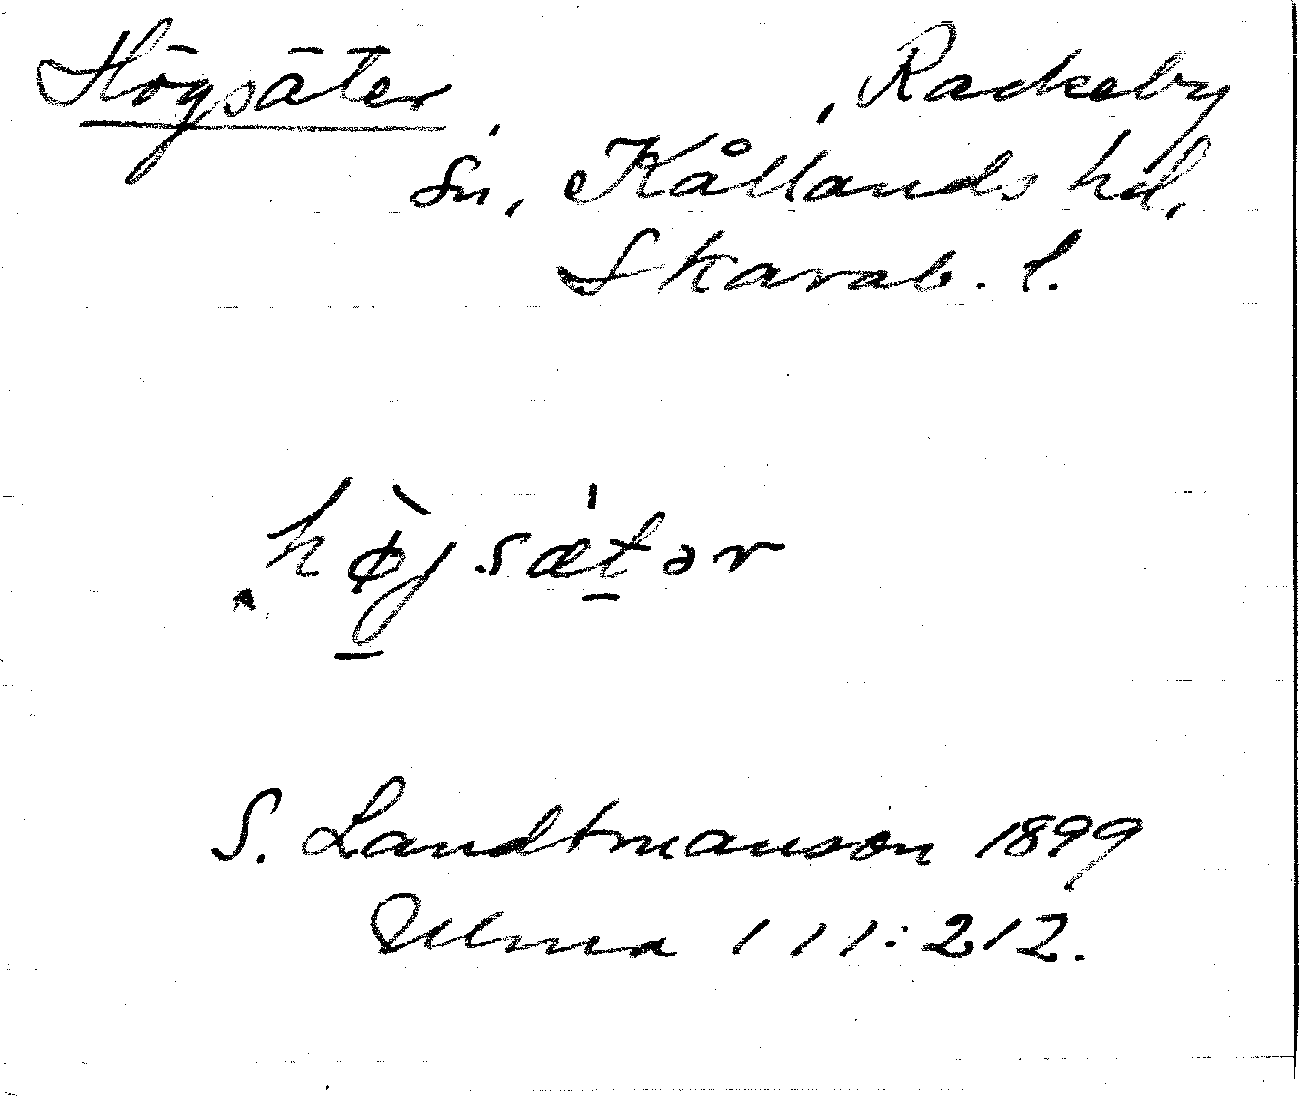 Högsäter, Rackeby
sn, Kållands hd,
Skarab. l.
hø̀jsæ̍tər
S. Landtmanson 1899
Ulma 111:212.